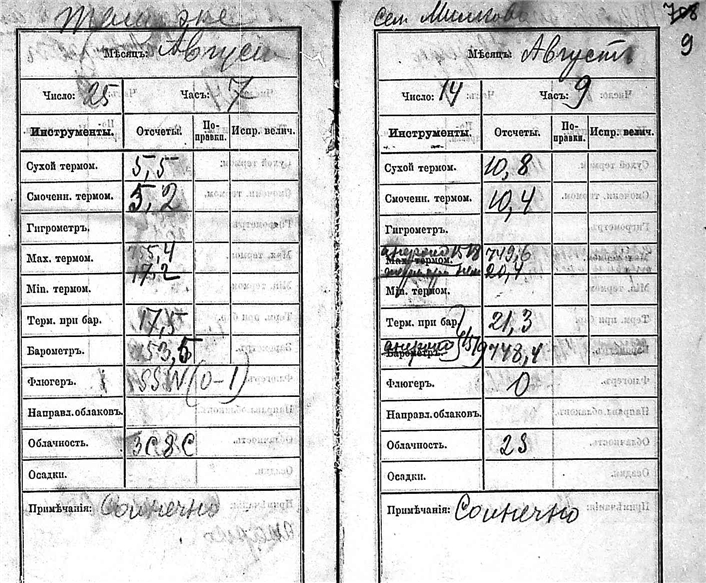 Мѣсяцъ: Августъ
Число: 25 Часъ: 7
Инструменты. Отсчеты. Поправки. Испр. велич.
Сухой термом. 5,5
Смоченн. термом. 5,2
Гигрометръ.
Max. термом. 755,4
17,2
Min. термом.
Терм. при бар. 17,5
Барометръ. 53,5
Флюгеръ. SSW (0-1)
Направл. облаковъ.
Облачность.
Осадки.
Примѣчанія: Солнечно
сел. Милково
9
Мѣсяцъ: Августъ
Число: 14 Часъ: 9
Инструменты. Отсчеты. Поправки. Испр. велич.
Сухой термом. 10,8
Смоченн. термом. 10,4
Гигрометръ.
анероид 1518 749,6
Max. термом.
20,4
Min. термом.
Терм. при бар. 21,3
анероид
Барометръ. 748,4
Флюгеръ. 0
Направл. облаковъ.
Облачность.
Осадки.
Примѣчанія: Солнечно